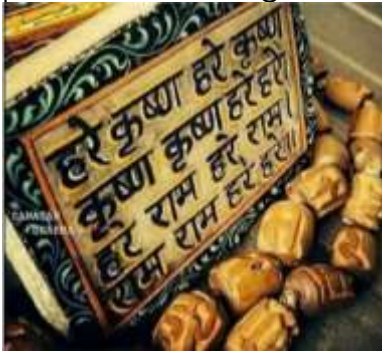 हरे कृष्ण हरे कृष्ण
कृष्ण कृष्ण हरे हरे।
हरे राम हरे राम।
राम राम हरे हरे॥